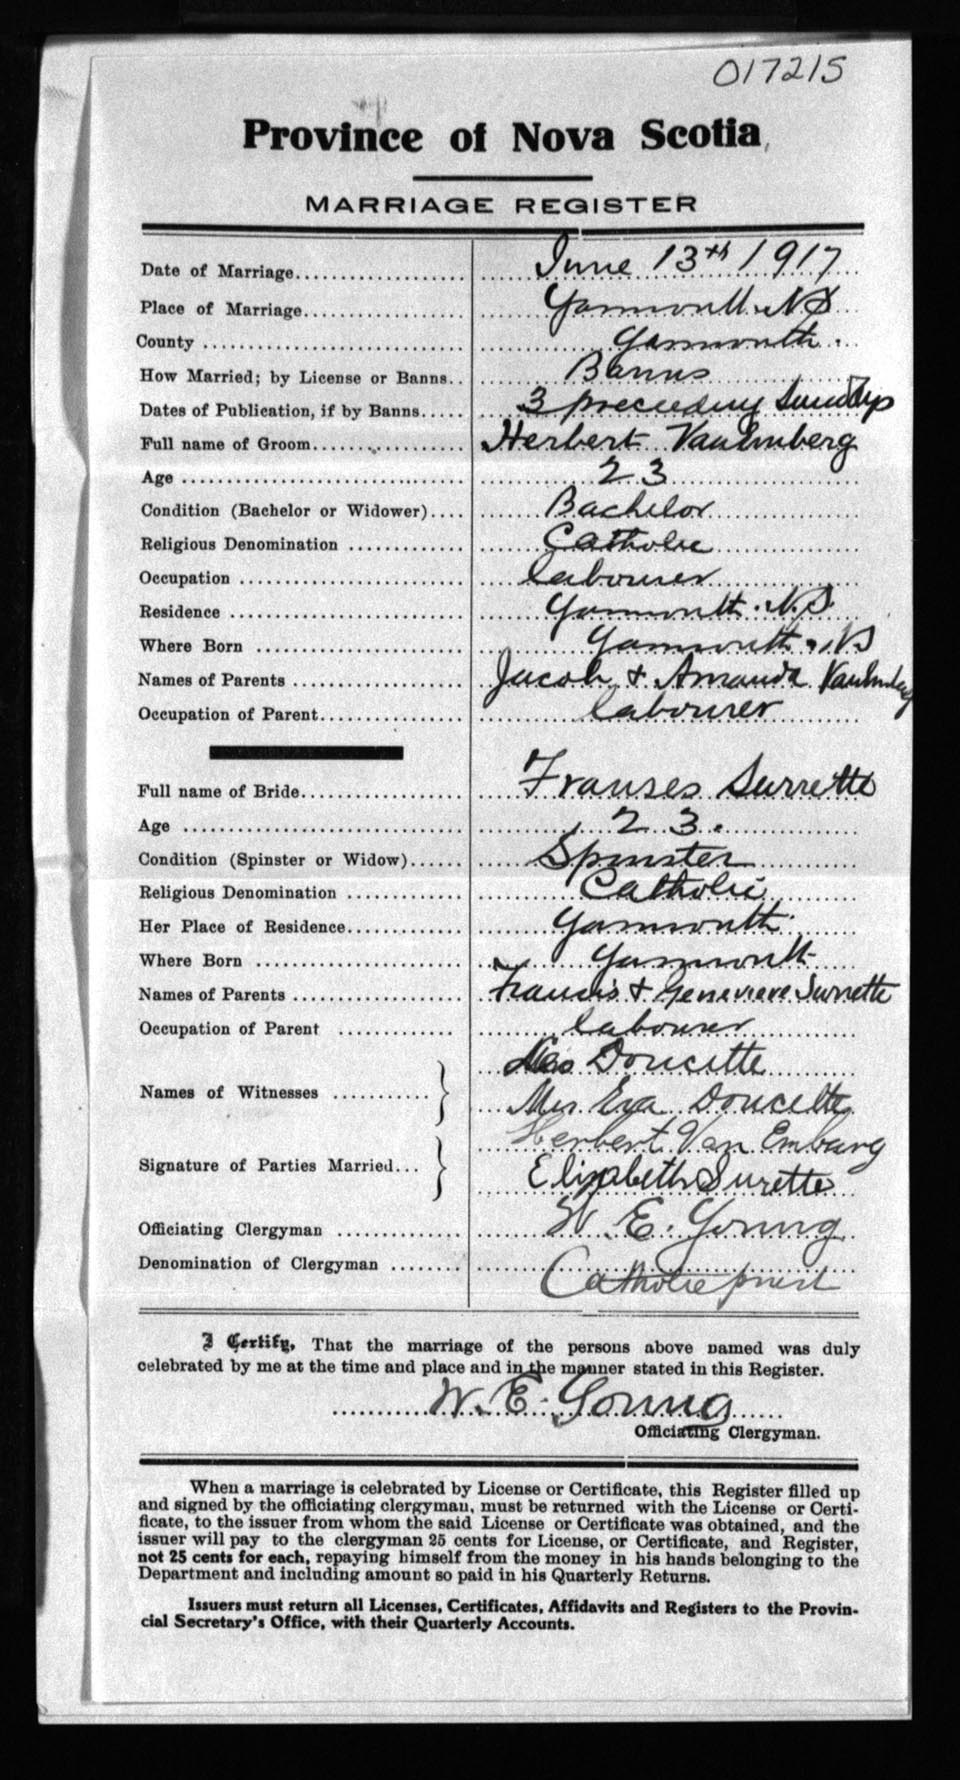 017215
Province of Nova Scotia
MARRIAGE REGISTER
Date of Marriage.................... June 13th 1917
Place of Marriage.................. Yarmouth N.S
County .......................... Yarmouth.
How Married; by License or Banns.. Banns
Dates of Publication, if by Banns..... 3 preceeding Sundays
Full name of Groom.................. Herbert
Age ............................. 23
Condition (Bachelor or Widower).... Bachelor
Religious Denomination ............ Catholic
Occupation ....................... labourer
Residence ........................ Yarmouth. N.S.
Where Born ..................... Yarmouth. NS
Names of Parents ................. Jacob & Amanda
Occupation of Parent............... labourer
Full name of Bride................. Franses Surrette
Age ............................ 23.
Condition (Spinster or Widow)...... Spinster
Religious Denomination ............ Catholic
Her Place of Residence............. Yarmouth
Where Born ..................... Yarmouth
Names of Parents ................. Francis & Genevieve Surrette
Occupation of Parent ............ labourer
Doucette
Names of Witnesses ........... } Mrs Eva Doucette
Herbert Van Emburg
Signature of Parties Married... } Elizabeth Surette
Officiating Clergyman ............ W. E. Young
Denomination of Clergyman ........ Catholic priest
I Certify, That the marriage of the persons above named was duly
celebrated by me at the time and place and in the manner stated in this Register.
W. E. Young
Officiating Clergyman.
When a marriage is celebrated by License or Certificate, this Register filled up
and signed by the officiating clergyman, must be returned with the License or Certi-
ficate, to the issuer from whom the said License or Certificate was obtained, and the
issuer will pay to the clergyman 25 cents for License, or Certificate, and Register,
not 25 cents for each, repaying himself from the money in his hands belonging to the
Department and including amount so paid in his Quarterly Returns.
Issuers must return all Licenses, Certificates, Affidavits and Registers to the Provin-
cial Secretary's Office, with their Quarterly Accounts.